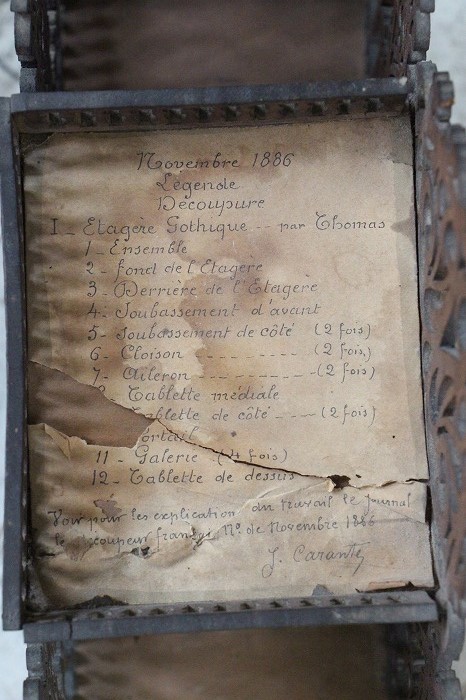 Novembre 1886
Légende
Découpure
I_ Etagère Gothique -- par Thomas
1_ Ensemble
2_ fond de l'Etagère
3_ Derrière de l'Etagère
4_ Soubassement d'avant
5_ Soubassement de côté (2 fois)
6_ Cloison (2 fois)
7_ Aileron (2 fois)
Tablette médiale
ablette de côté (2 fois)
ortail
11_ Galerie (4 fois)
12_ Tablette de dessus
Voir pour les explication du travail le Journal
le découpeur français No. de Novembre 1886